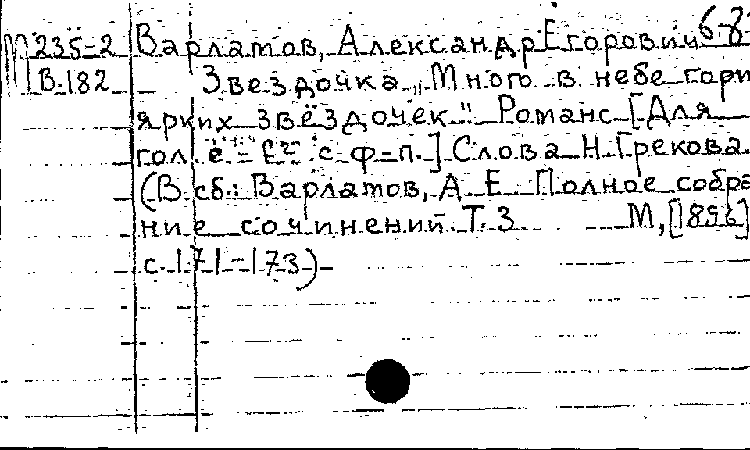 М 235-2 Варламов, Александр Егорович 6-8
В-182 Звездочка „Много в небе гори
ярких звёздочек" Романс [Для
гол. с ф-п.] Слова Н. Грекова.
(В сб.: Варламов, А. Е. Полное собра
ние сочинений. Т. 3 М, [1896]
с. 171-173)